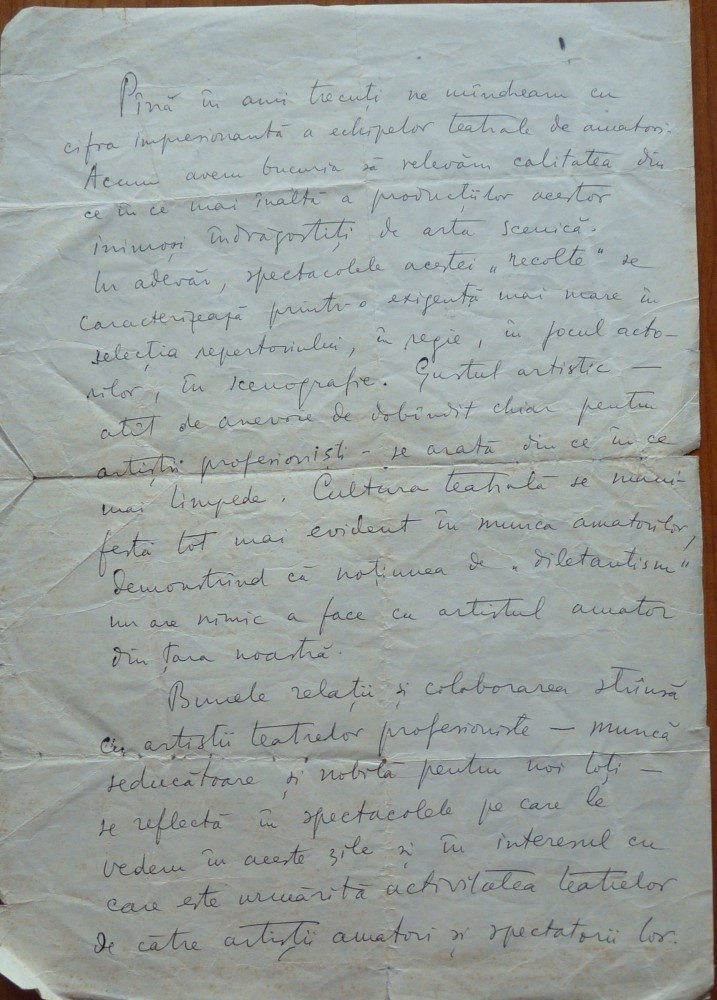 Pînă în anii trecuți ne mîndream cu
cifra impresionantă a echipelor teatrale de amatori.
Acum avem bucuria să relevăm calitatea din
ce în ce mai înaltă a producțiilor acestor
inimoși îndrăgostiți de arta scenică.
In adevăr, spectacolele acestei „recolte" se
caracterizează printr-o exigență mai mare în
selecția repertoriului, în regie, în jocul acto-
rilor, în scenografie. Gustul artistic —
atît de anevoie de dobîndit chiar pentru
artiștii profesioniști - se arată din ce în ce
mai limpede. Cultura teatrală se mani-
festă tot mai evident în munca amatorilor,
demonstrînd că noțiunea de „diletantism"
nu are nimic a face cu artistul amator
din țara noastră.
Bunele relații și colaborarea strînsă
cu artiștii teatrelor profesioniste — muncă
seducătoare și nobilă pentru noi toți —
se reflectă în spectacolele pe care le
vedem în aceste zile și în interesul cu
care este urmărită activitatea teatrelor
de către artiștii amatori și spectatorii lor.